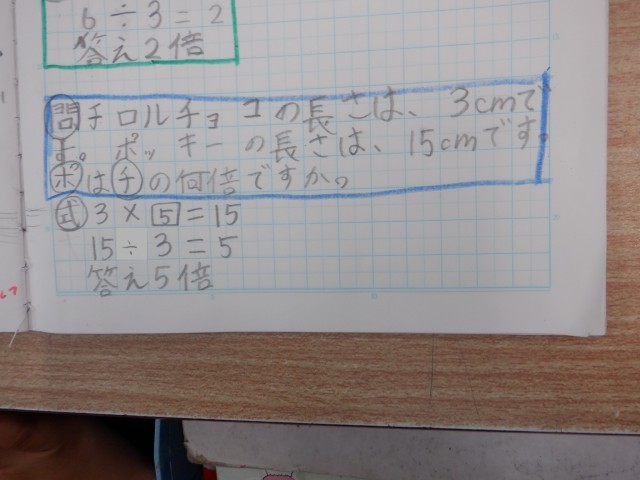 6÷3=2
答え2倍
問チロルチョコの長さは、3cmで
す。ポッキーの長さは、15cmです。
ポはチの何倍ですか。
式3×5=15
15÷3=5
答え5倍